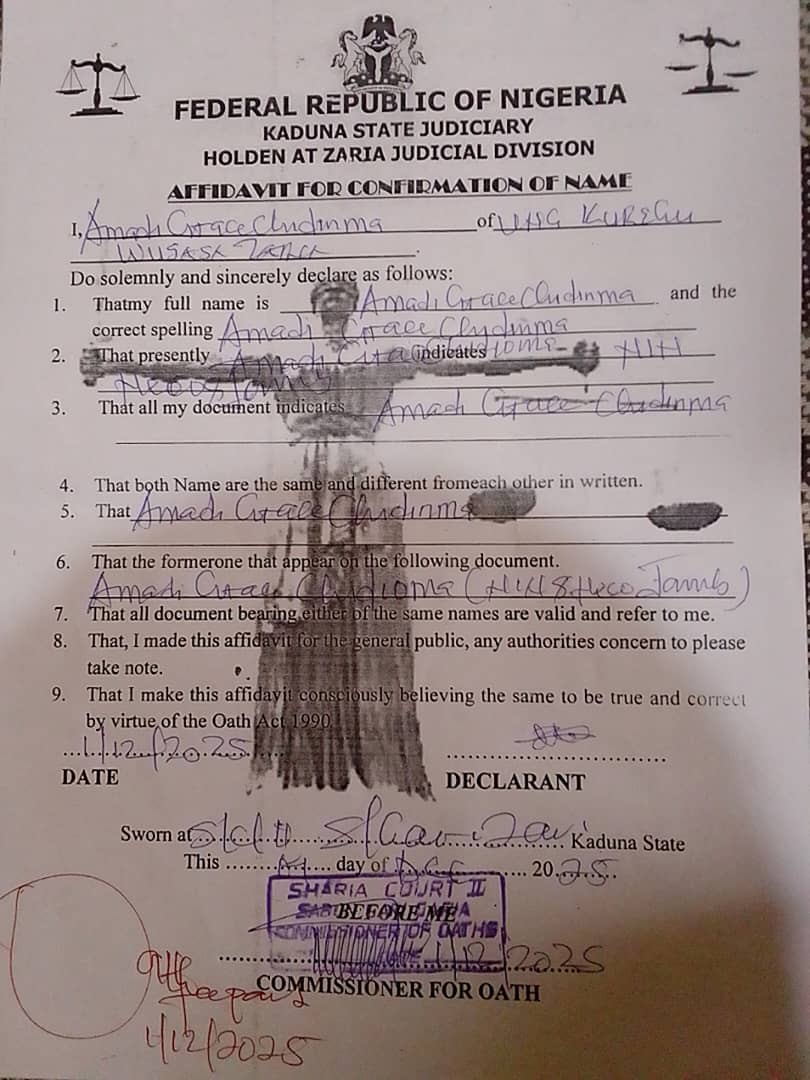 FEDERAL REPUBLIC OF NIGERIA
KADUNA STATE JUDICIARY
HOLDEN AT ZARIA JUDICIAL DIVISION
AFFIDAVIT FOR CONFIRMATION OF NAME
I, Amadi Grace Chidinma of UNG KUREGU
WUSASA ZARIA.
Do solemnly and sincerely declare as follows:
1. Thatmy full name is Amadi Grace Chidinma and the
correct spelling Amadi Grace Chidinma
2. That presently Amadi Grace Chidioma indicates NIN
3. That all my document indicates Amadi Grace Chidinma
4. That both Name are the same and different fromeach other in written.
5. That Amadi Grace Chidinma
6. That the formerone that appear on the following document.
Amadi Grace Chidioma (NIN & Neco Jamb)
7. That all document bearing either of the same names are valid and refer to me.
8. That, I made this affidavit for the general public, any authorities concern to please
take note.
9. That I make this affidavit consciously believing the same to be true and correct
by virtue of the Oath Act 1990
1/12/2025
DATE DECLARANT
Sworn at Kaduna State
This day of Dec 2025.
SHARIA COURT II
BEFORE ME
COMMISSIONER OF OATHS
1/12/2025
COMMISSIONER FOR OATH
1/12/2025